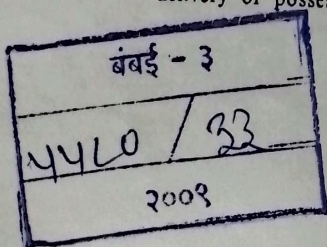 बंबई - ३
५५८० / ३३
२००१